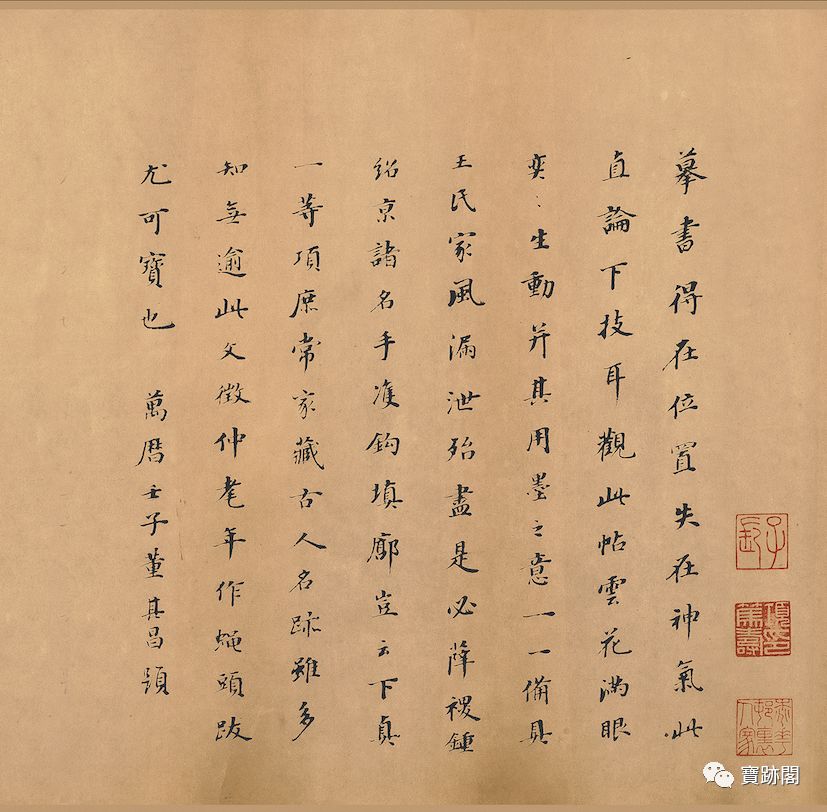 摹書得在位置失在神氣此
直論下技耳觀此帖雲花滿眼
奕〻生動并其用墨之意一一備具
王氏家風漏泄殆盡是必薛稷鍾
紹京諸名手雙鈎填廓豈云下真
一等項庶常家藏古人名跡雖多
知無逾此文徵仲耄年作蠅頭跋
尤可寶也 萬曆壬子董其昌題
子長
項篤壽印
寶跡閣